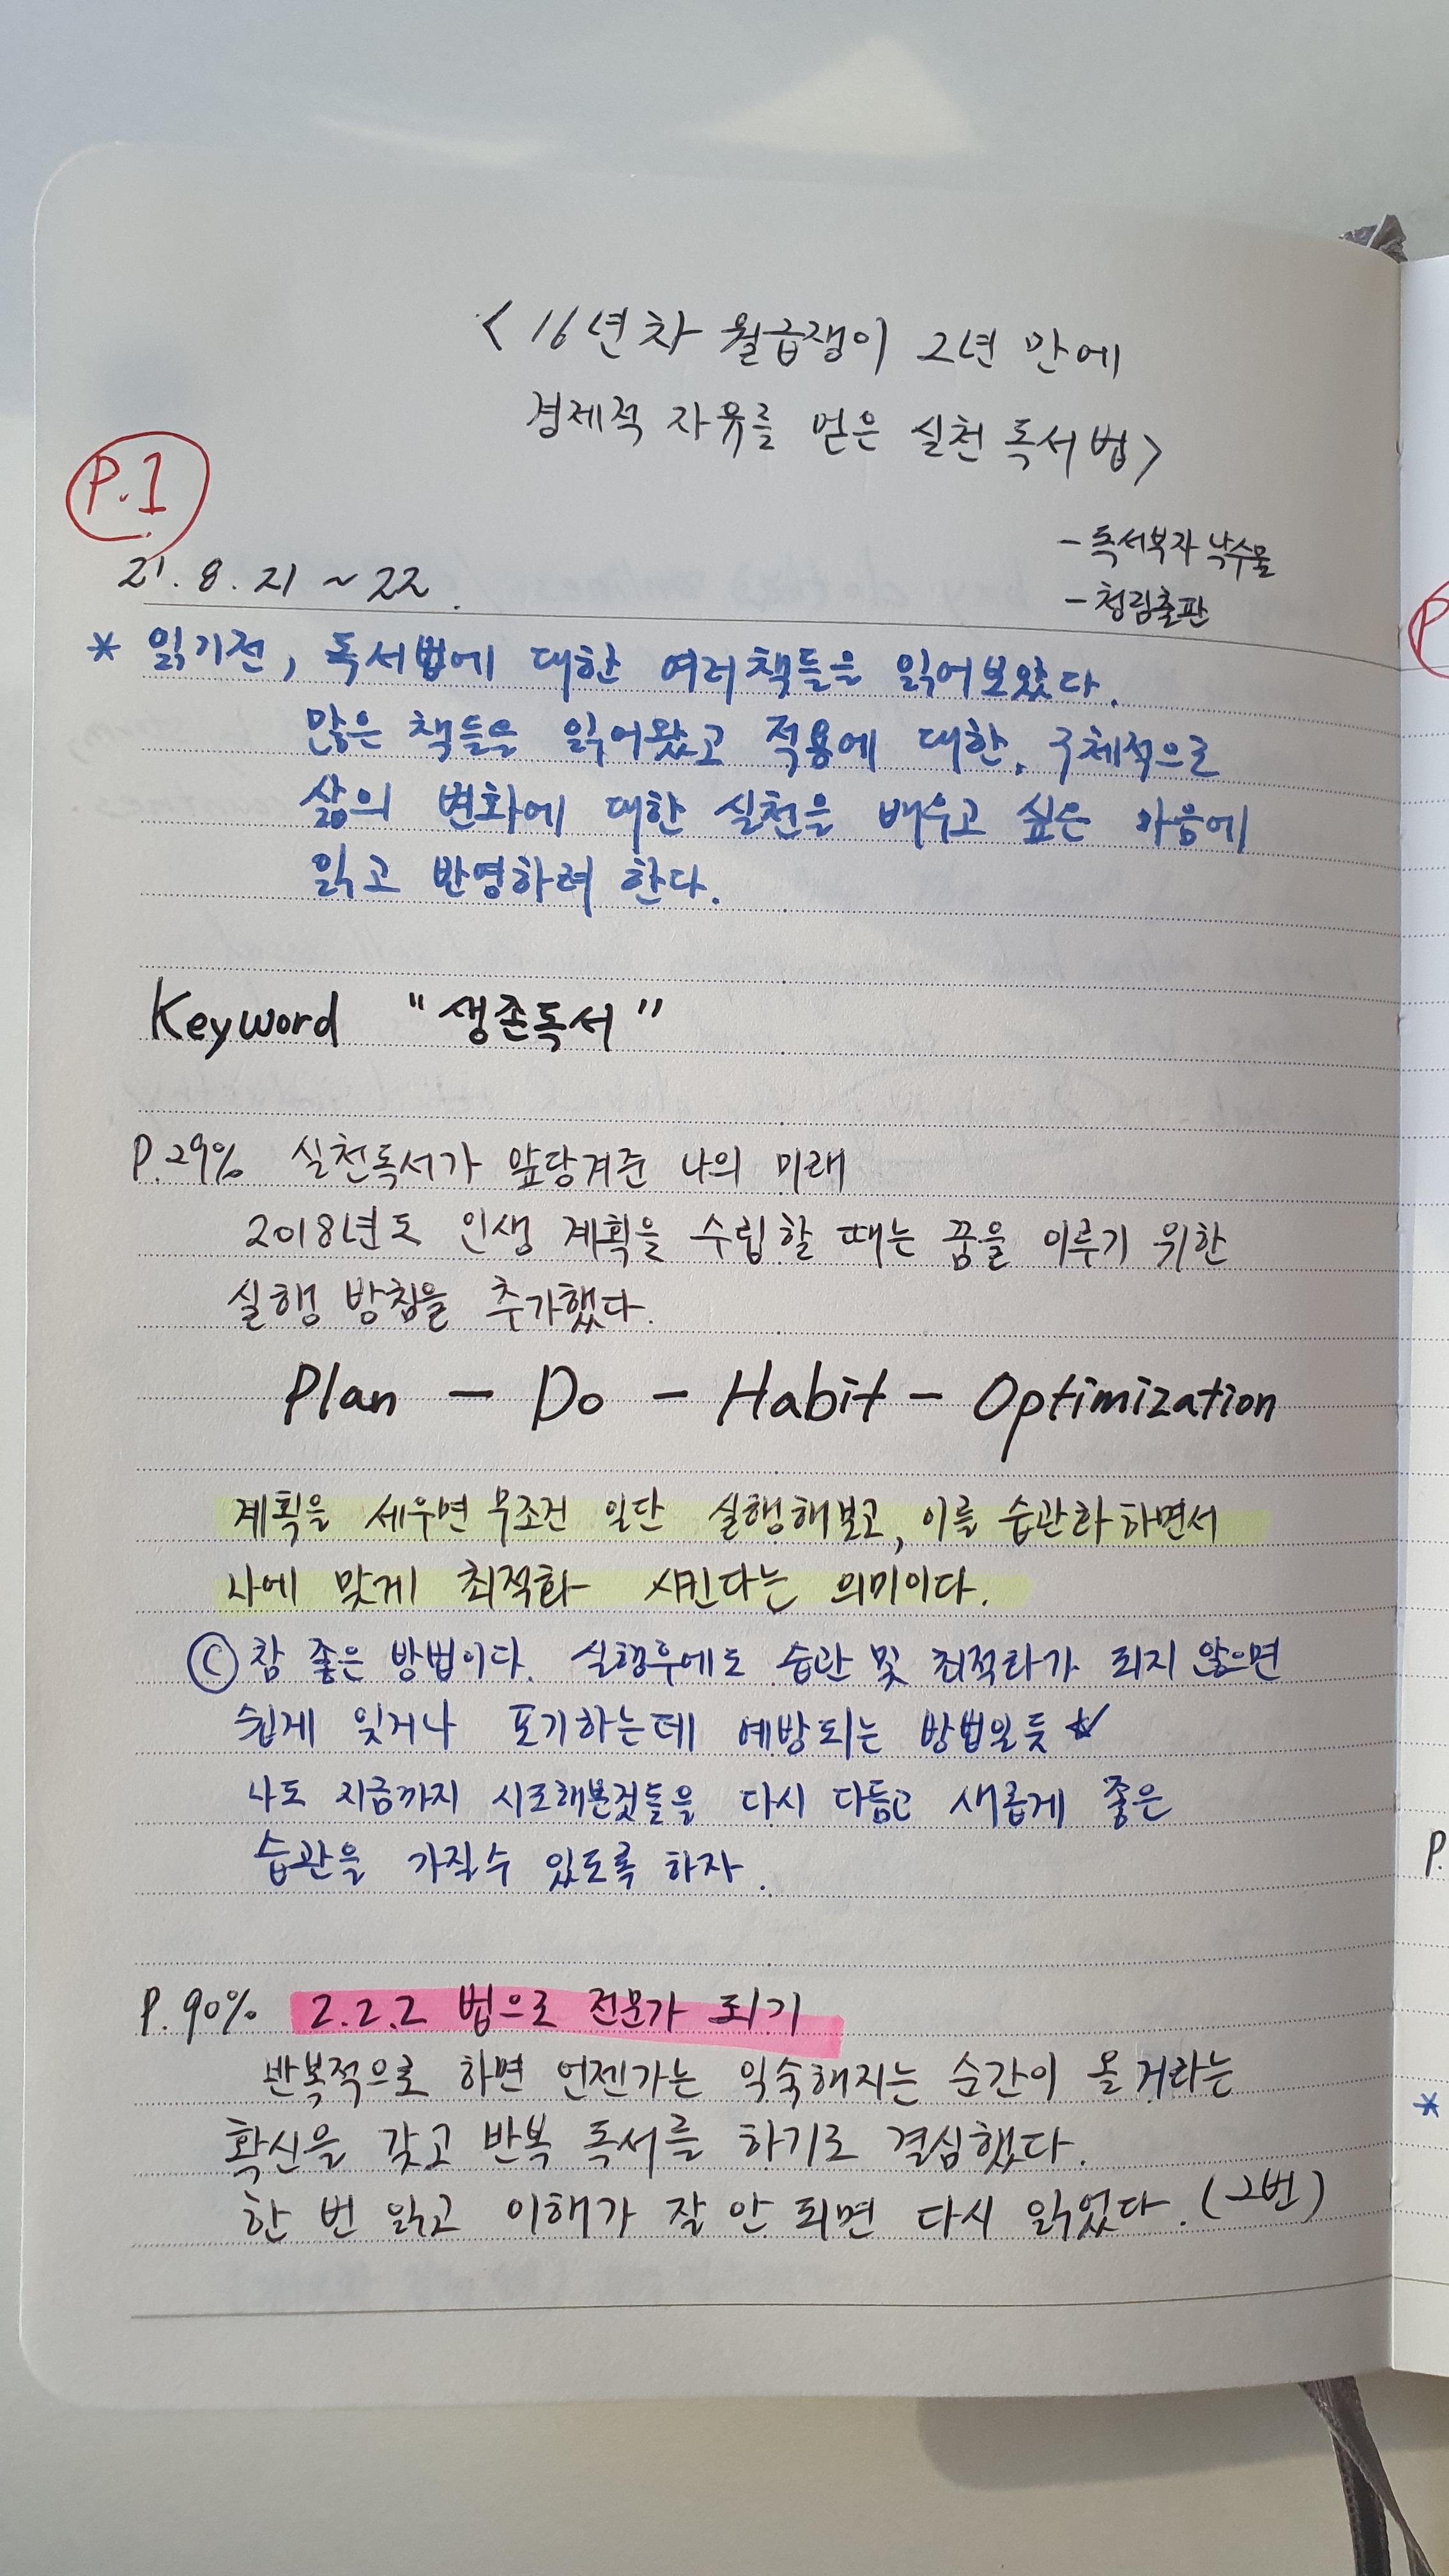 <16년차 월급쟁이 2년 만에
경제적 자유를 얻은 실천 독서법>
P.1
- 독서부자 낙숫물
21. 8. 21 ~ 22.
- 청림출판
* 읽기전, 독서법에 대한 여러책들을 읽어보았다.
많은 책들을 읽어왔고 적용에 대한, 구체적으로
삶의 변화에 대한 실천을 배우고 싶은 마음에
읽고 반영하려 한다.
Keyword "생존독서"
P.29% 실천독서가 앞당겨준 나의 미래
2018년도 인생 계획을 수립할 때는 꿈을 이루기 위한
실행 방침을 추가했다.
Plan - Do - Habit - Optimization
계획을 세우면 무조건 일단 실행해보고, 이를 습관화하면서
나에 맞게 최적화 시킨다는 의미이다.
ⓒ 참 좋은 방법이다. 실행후에도 습관 및 최적화가 되지 않으면
쉽게 잊거나 포기하는데 예방되는 방법일듯 ☆
나도 지금까지 시도해본것들을 다시 다듬고 새롭게 좋은
습관을 가질수 있도록 하자.
P.90% 2.2.2 법으로 전문가 되기
반복적으로 하면 언젠가는 익숙해지는 순간이 올거라는
확신을 갖고 반복 독서를 하기로 결심했다.
한 번 읽고 이해가 잘 안 되면 다시 읽었다. (2번)
P.
*